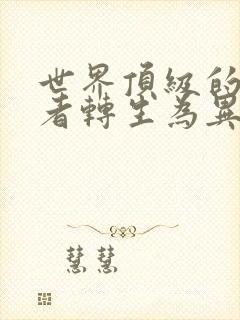 世界頂級的
者轉生為異
慧慧